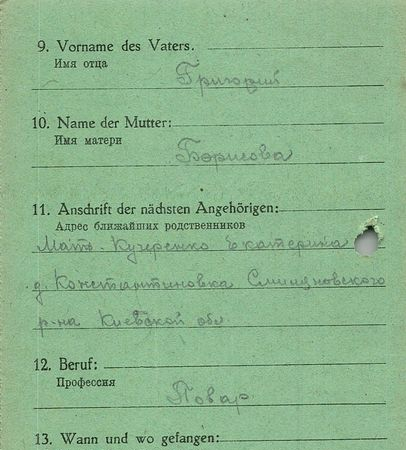 9. Vorname des Vaters.
Имя отца
Григорий
10. Name der Mutter:
Имя матери
Борисова
11. Anschrift der nächsten Angehörigen:
Адрес ближайших родственников
Мать-Кучеренко Екатерина
д. Константиновка Смиляновского
р-на Киевской обл.
12. Beruf:
Профессия
Повар
13. Wann und wo gefangen: